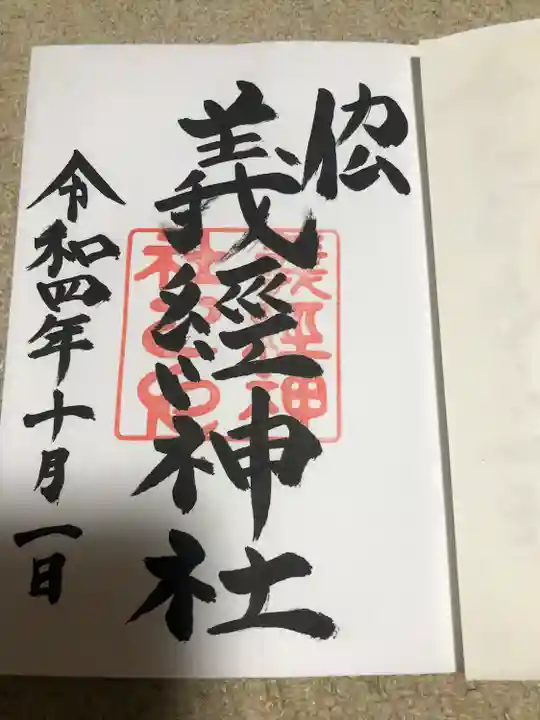 義經神社
義経神
社之印
令和四年十月一日